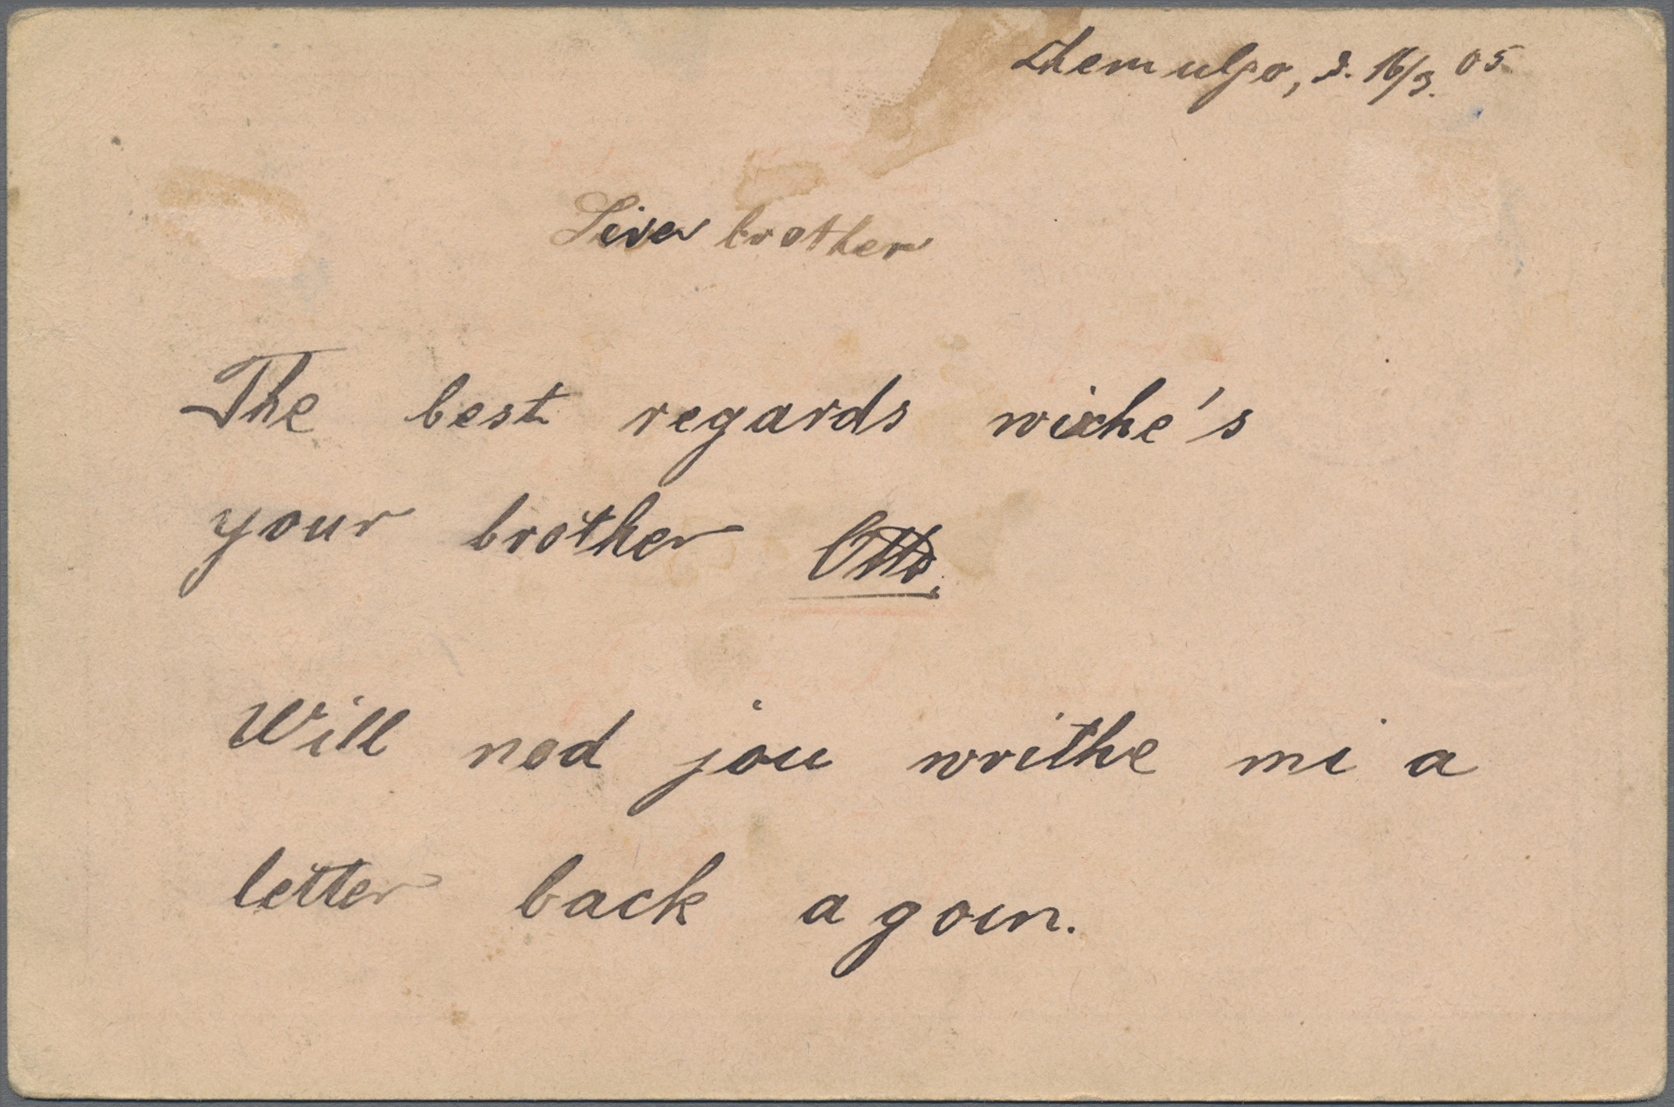 Chemulpo, d. 16/3. 05
Liver brother
The best regards wiche's
your brother Otto.
Will nod jou writhe mi a
letter back agoin.